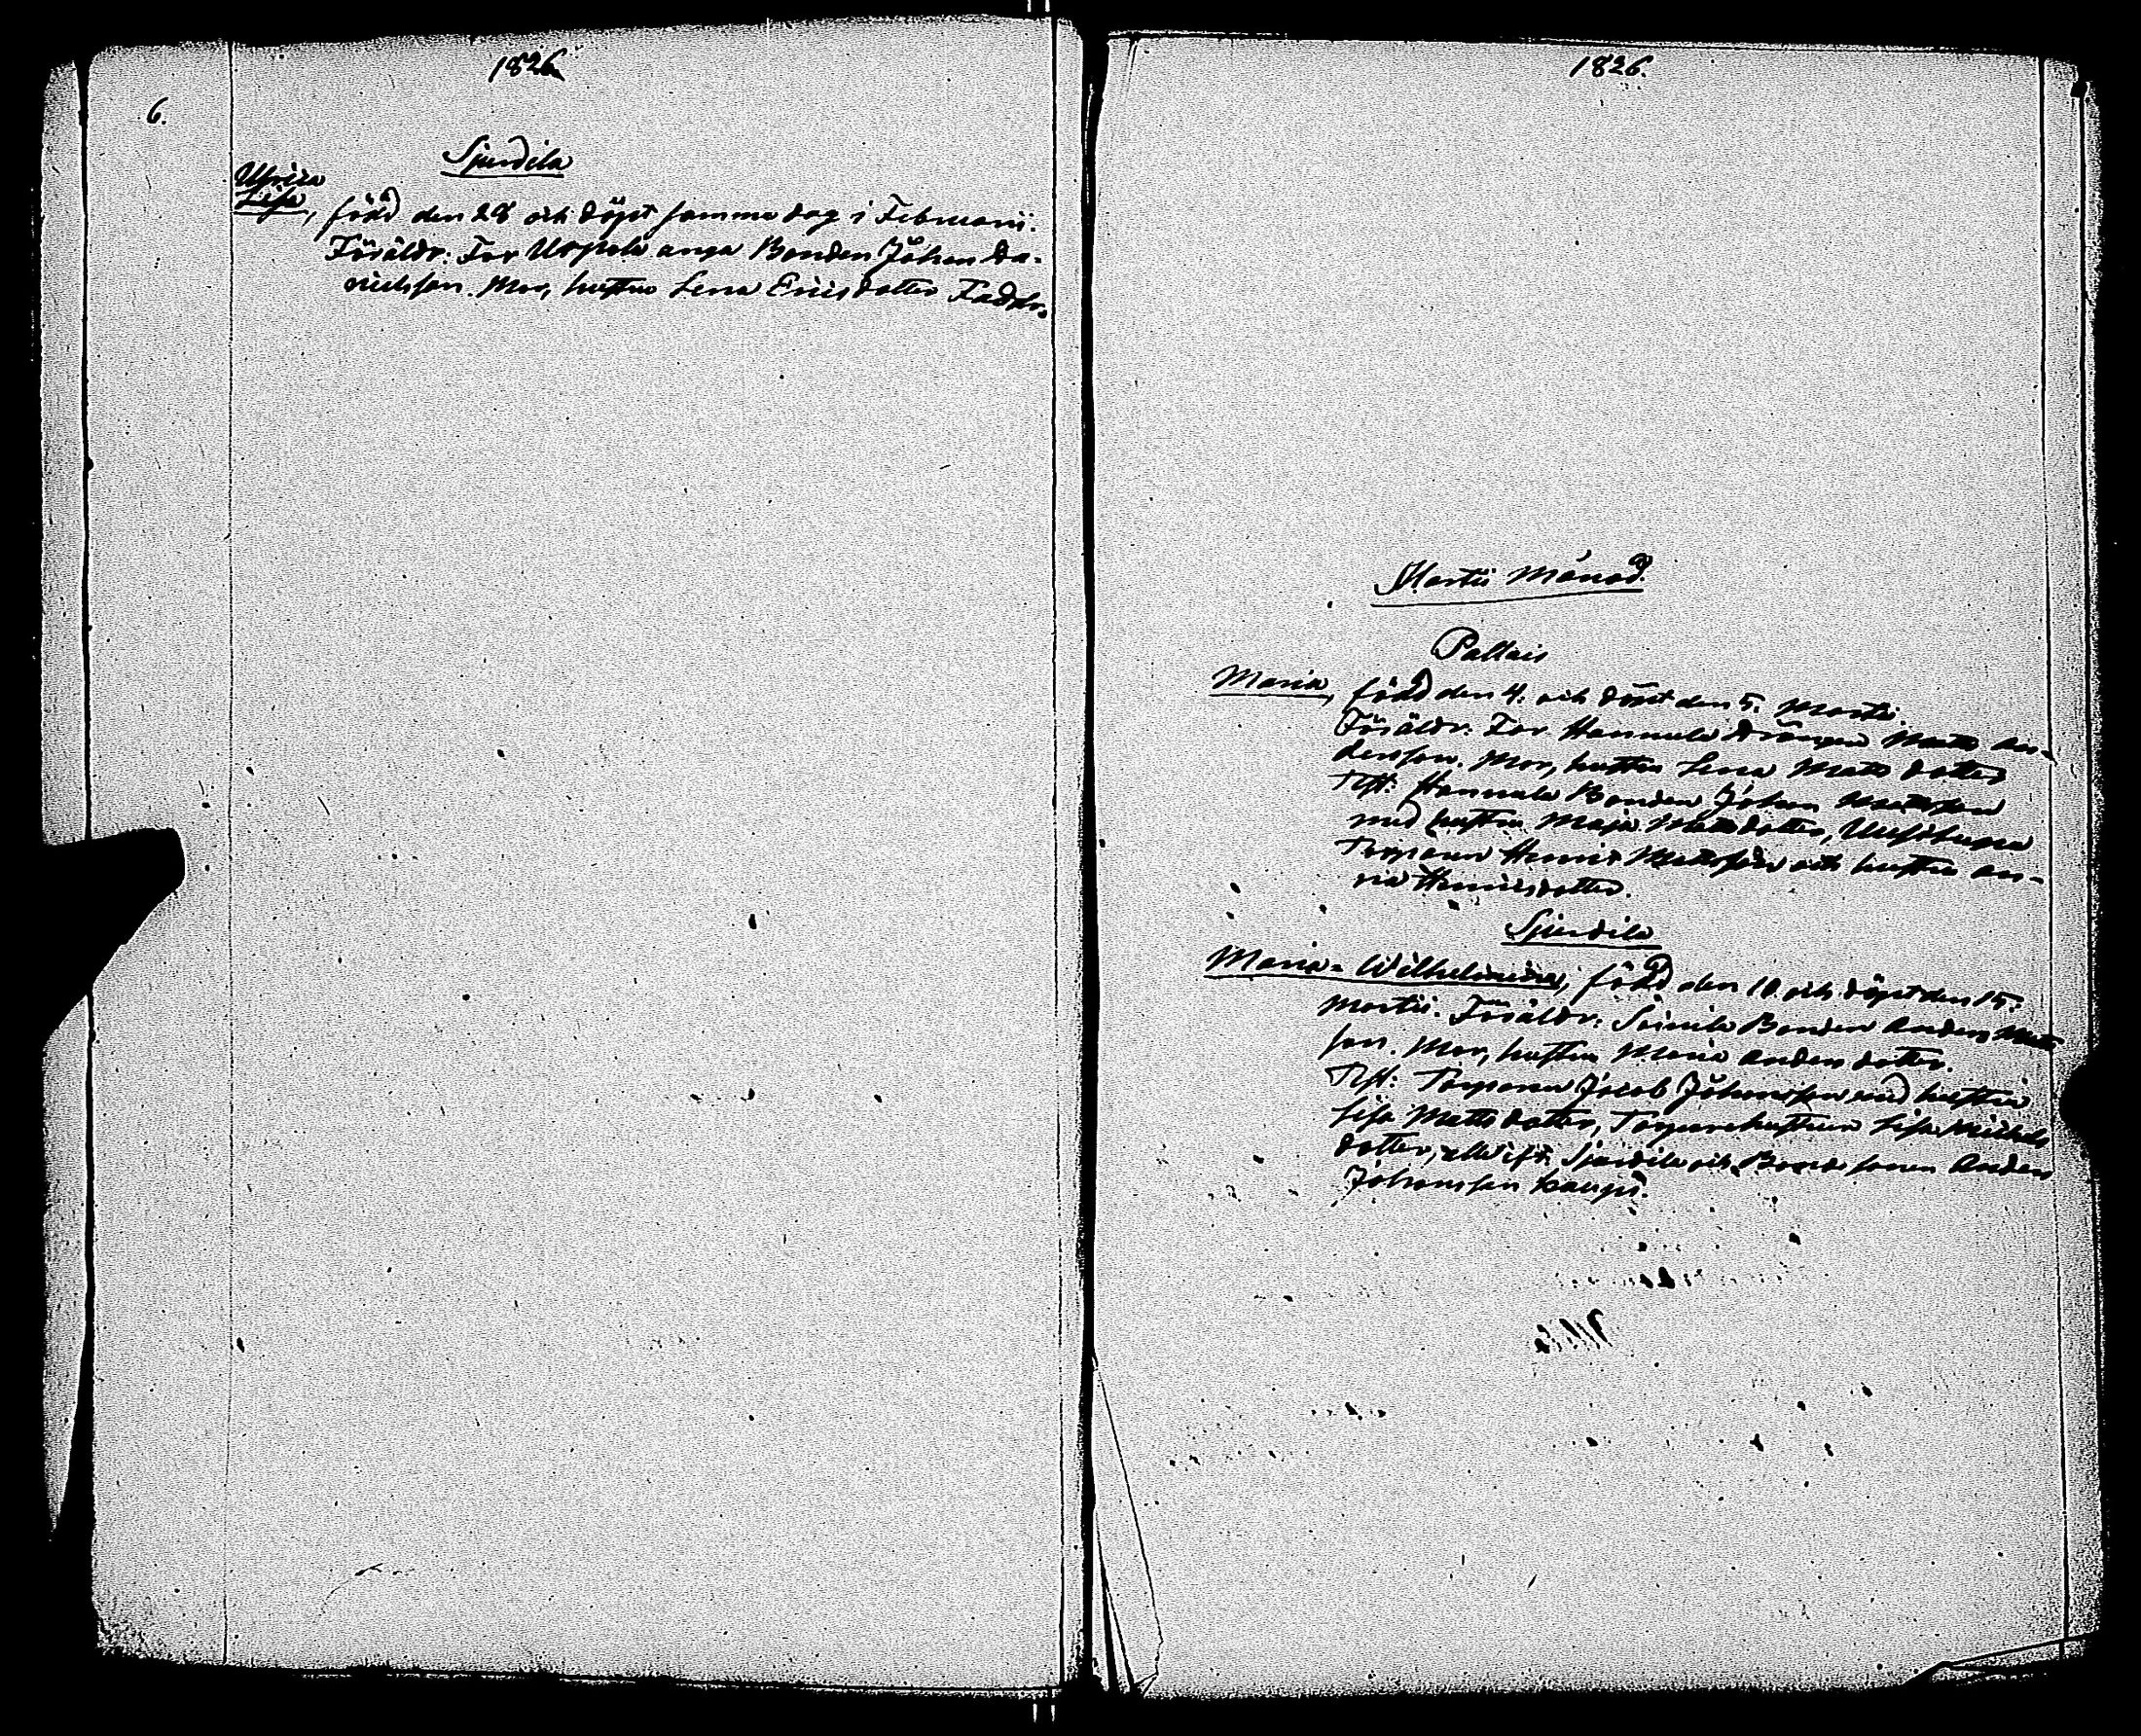 1826.
6.
Sjundela
Ulrica
Lisa, född den 28 och döpt samma dag i Februarii.
Föräldr. Far unga Bonden Johan Da-
nielsson. Mor, hustru Lena Ericsdotter Faddr.
1826.
Martii Månad.
Pallais
Maria, född den 4. och döpt den 5. Martii.
Föräldr: Far Hannula Drängen Matts An-
dersson. Mor, hustru Lena Matts dotter
Test: Hannula Bonden Johan Mattsson
med hustru Maja Mattsdotter,
Torparen Henric Mattsson och hustru An-
na Henricsdotter.
Sjundela
Maria-Wilhelmina, född den 10. och döpt den 15.
Martii. Föräldr: Bonden Anders Matts
son. Mor, hustru Maria Anders dotter.
Test: Torparen Jacob Johansson med hustru
Lisa Matts dotter, Torparehustrun Lisa Michels
dotter, Sjundela och Bonde sonen Anders
Johansson